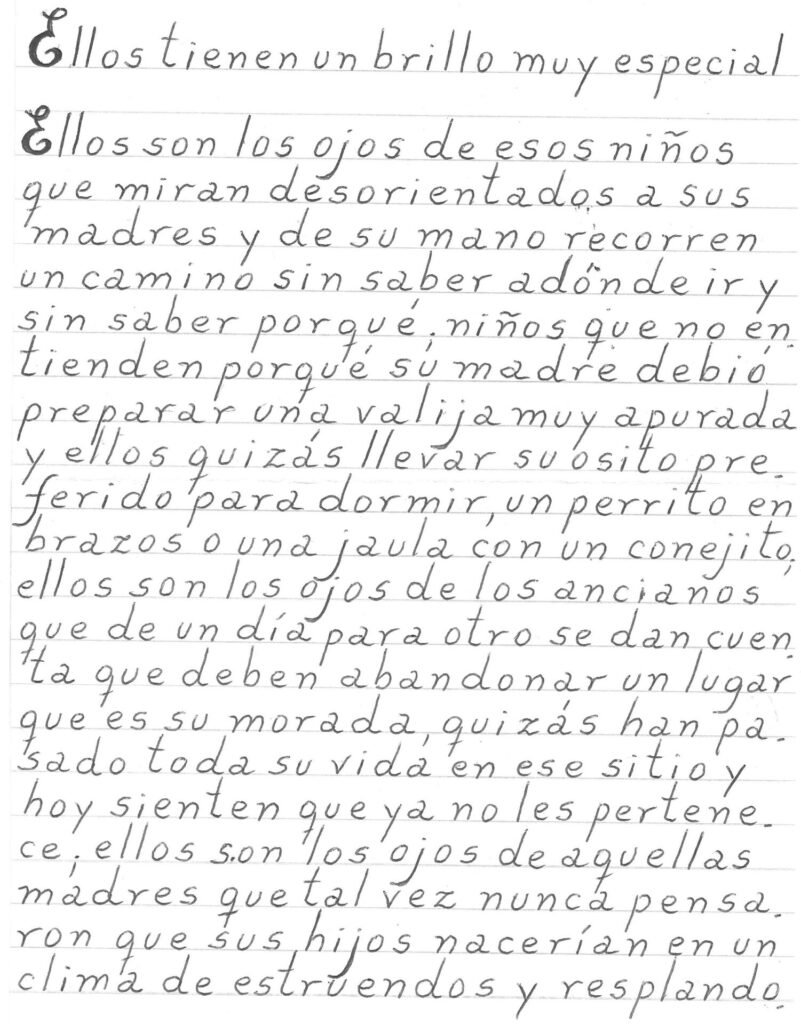 Ellos tienen un brillo muy especial
Ellos son los ojos de esos niños
que miran desorientados a sus
madres y de su mano recorren
un camino sin saber adónde ir y
sin saber porqué; niños que no en_
tienden porqué su madre debió
preparar una valija muy apurada
y ellos quizás llevar su osito pre_
ferido para dormir, un perrito en
brazos o una jaula con un conejito;
ellos son los ojos de los ancianos
que de un día para otro se dan cuen_
ta que deben abandonar un lugar
que es su morada, quizás han pa_
sado toda su vida en ese sitio y
hoy sienten que ya no les pertene_
ce; ellos son los ojos de aquellas
madres que tal vez nunca pensa_
ron que sus hijos nacerían en un
clima de estruendos y resplando_